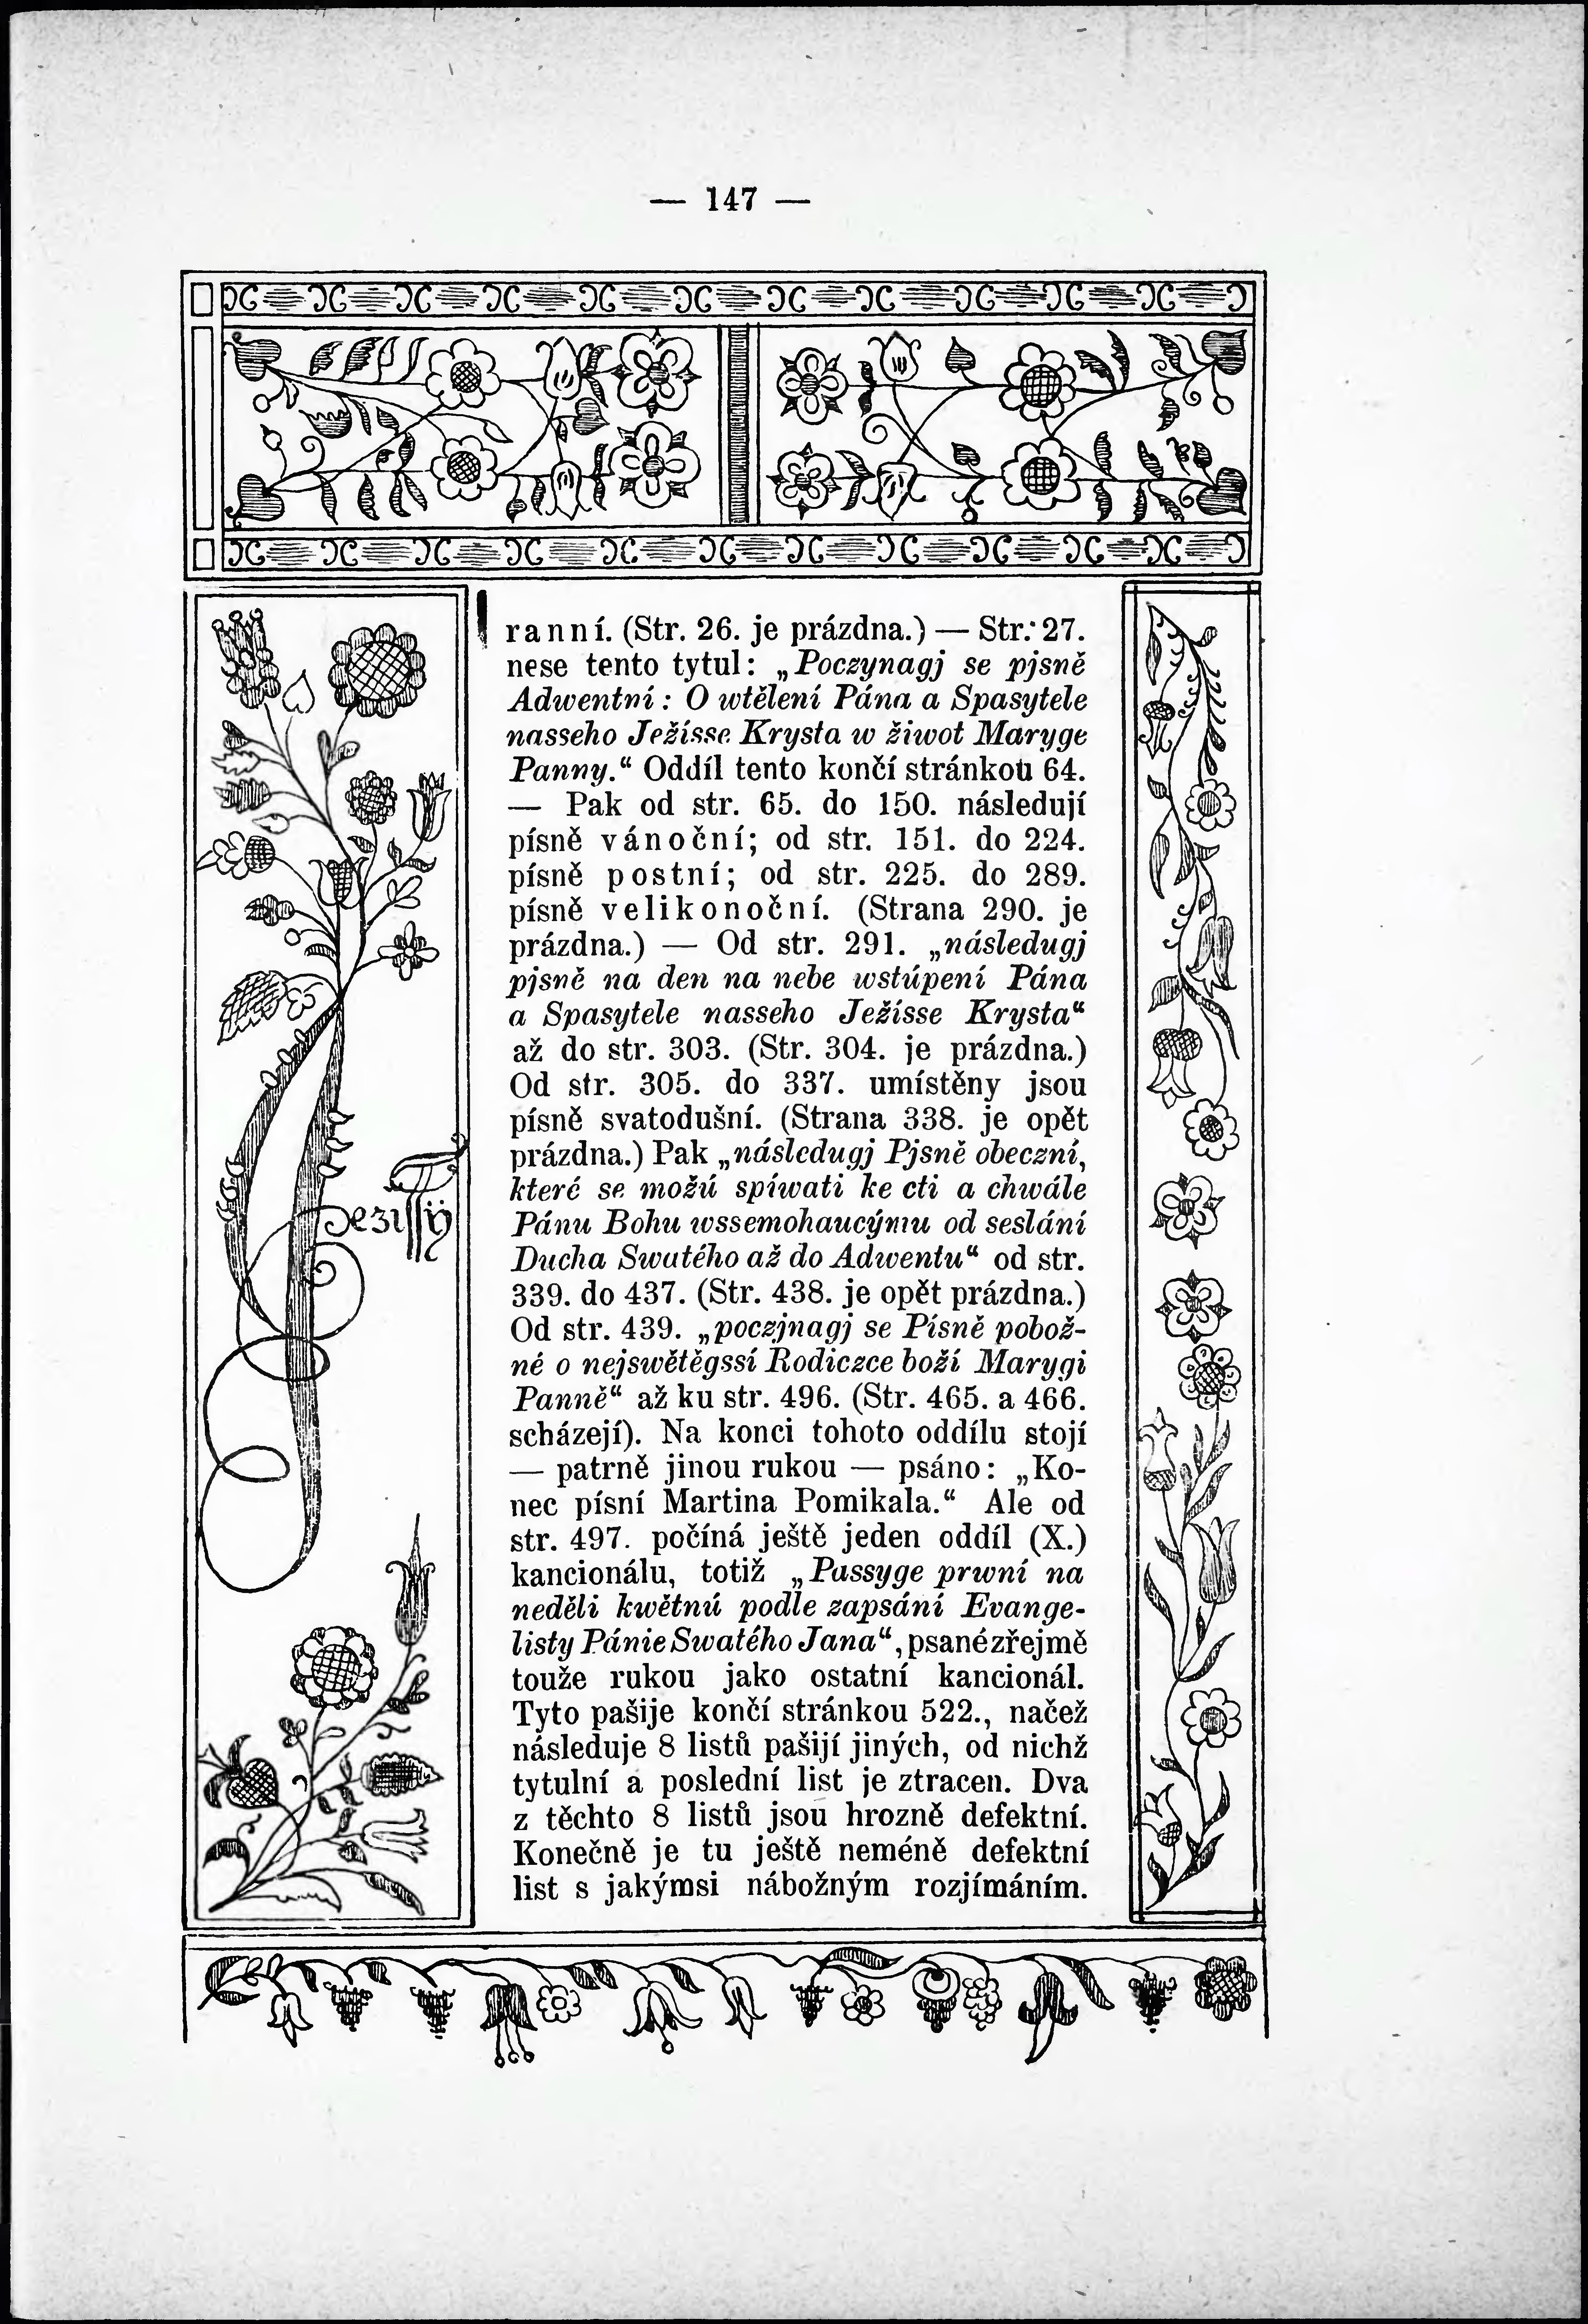 — 147 —
ranní. (Str. 26. je prázdna.) — Str. 27.
nese tento tytul: „Poczynagj se pjsně
Adwentní: O wtělení Pána a Spasytele
nasseho Ježísse Krysta w žiwot Maryge
Panny.“ Oddíl tento končí stránkou 64.
— Pak od str. 65. do 150. následují
písně vánoční; od str. 151. do 224.
písně postní; od str. 225. do 289.
písně velikonoční. (Strana 290. je
prázdna.) — Od str. 291. „následugj
pjsně na den na nebe wstúpení Pána
a Spasytele nasseho Ježísse Krysta“
až do str. 303. (Str. 304. je prázdna.)
Od str. 305. do 337. umístěny jsou
písně svatodušní. (Strana 338. je opět
prázdna.) Pak „následugj Pjsně obeczní,
které se možú spíwati ke cti a chwále
Pánu Bohu wssemohaucýmu od seslání
Ducha Swatého až do Adwentu“ od str.
339. do 437. (Str. 438. je opět prázdna.)
Od str. 439. „poczjnagj se Písně pobož-
né o nejswětěgssí Rodiczce boží Marygi
Panně“ až ku str. 496. (Str. 465. a 466.
scházejí). Na konci tohoto oddílu stojí
— patrně jinou rukou — psáno: „Ko-
nec písní Martina Pomikala.“ Ale od
str. 497. počíná ještě jeden oddíl (X.)
kancionálu, totiž „Passyge prwní na
neděli kwětnú podle zapsání Evange-
listy Pánie Swatého Jana“, psané zřejmě
touže rukou jako ostatní kancionál.
Tyto pašije končí stránkou 522., načež
následuje 8 listů pašijí jiných, od nichž
tytulní a poslední list je ztracen. Dva
z těchto 8 listů jsou hrozně defektní.
Konečně je tu ještě neméně defektní
list s jakýmsi nábožným rozjímáním.